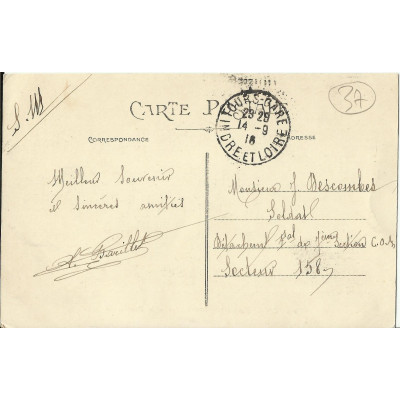 S. M
37
CARTE PO
TOURS-GARE
23 25
14 - 9
16
INDRE-ET-LOIRE
CORRESPONDANCE
ADRESSE
Meilleur Souvenir
et Sincères amitiés
Barillet
Monsieur J. Descombes
Soldat
Détachement de 7ème Section C.O.A
Secteur 158